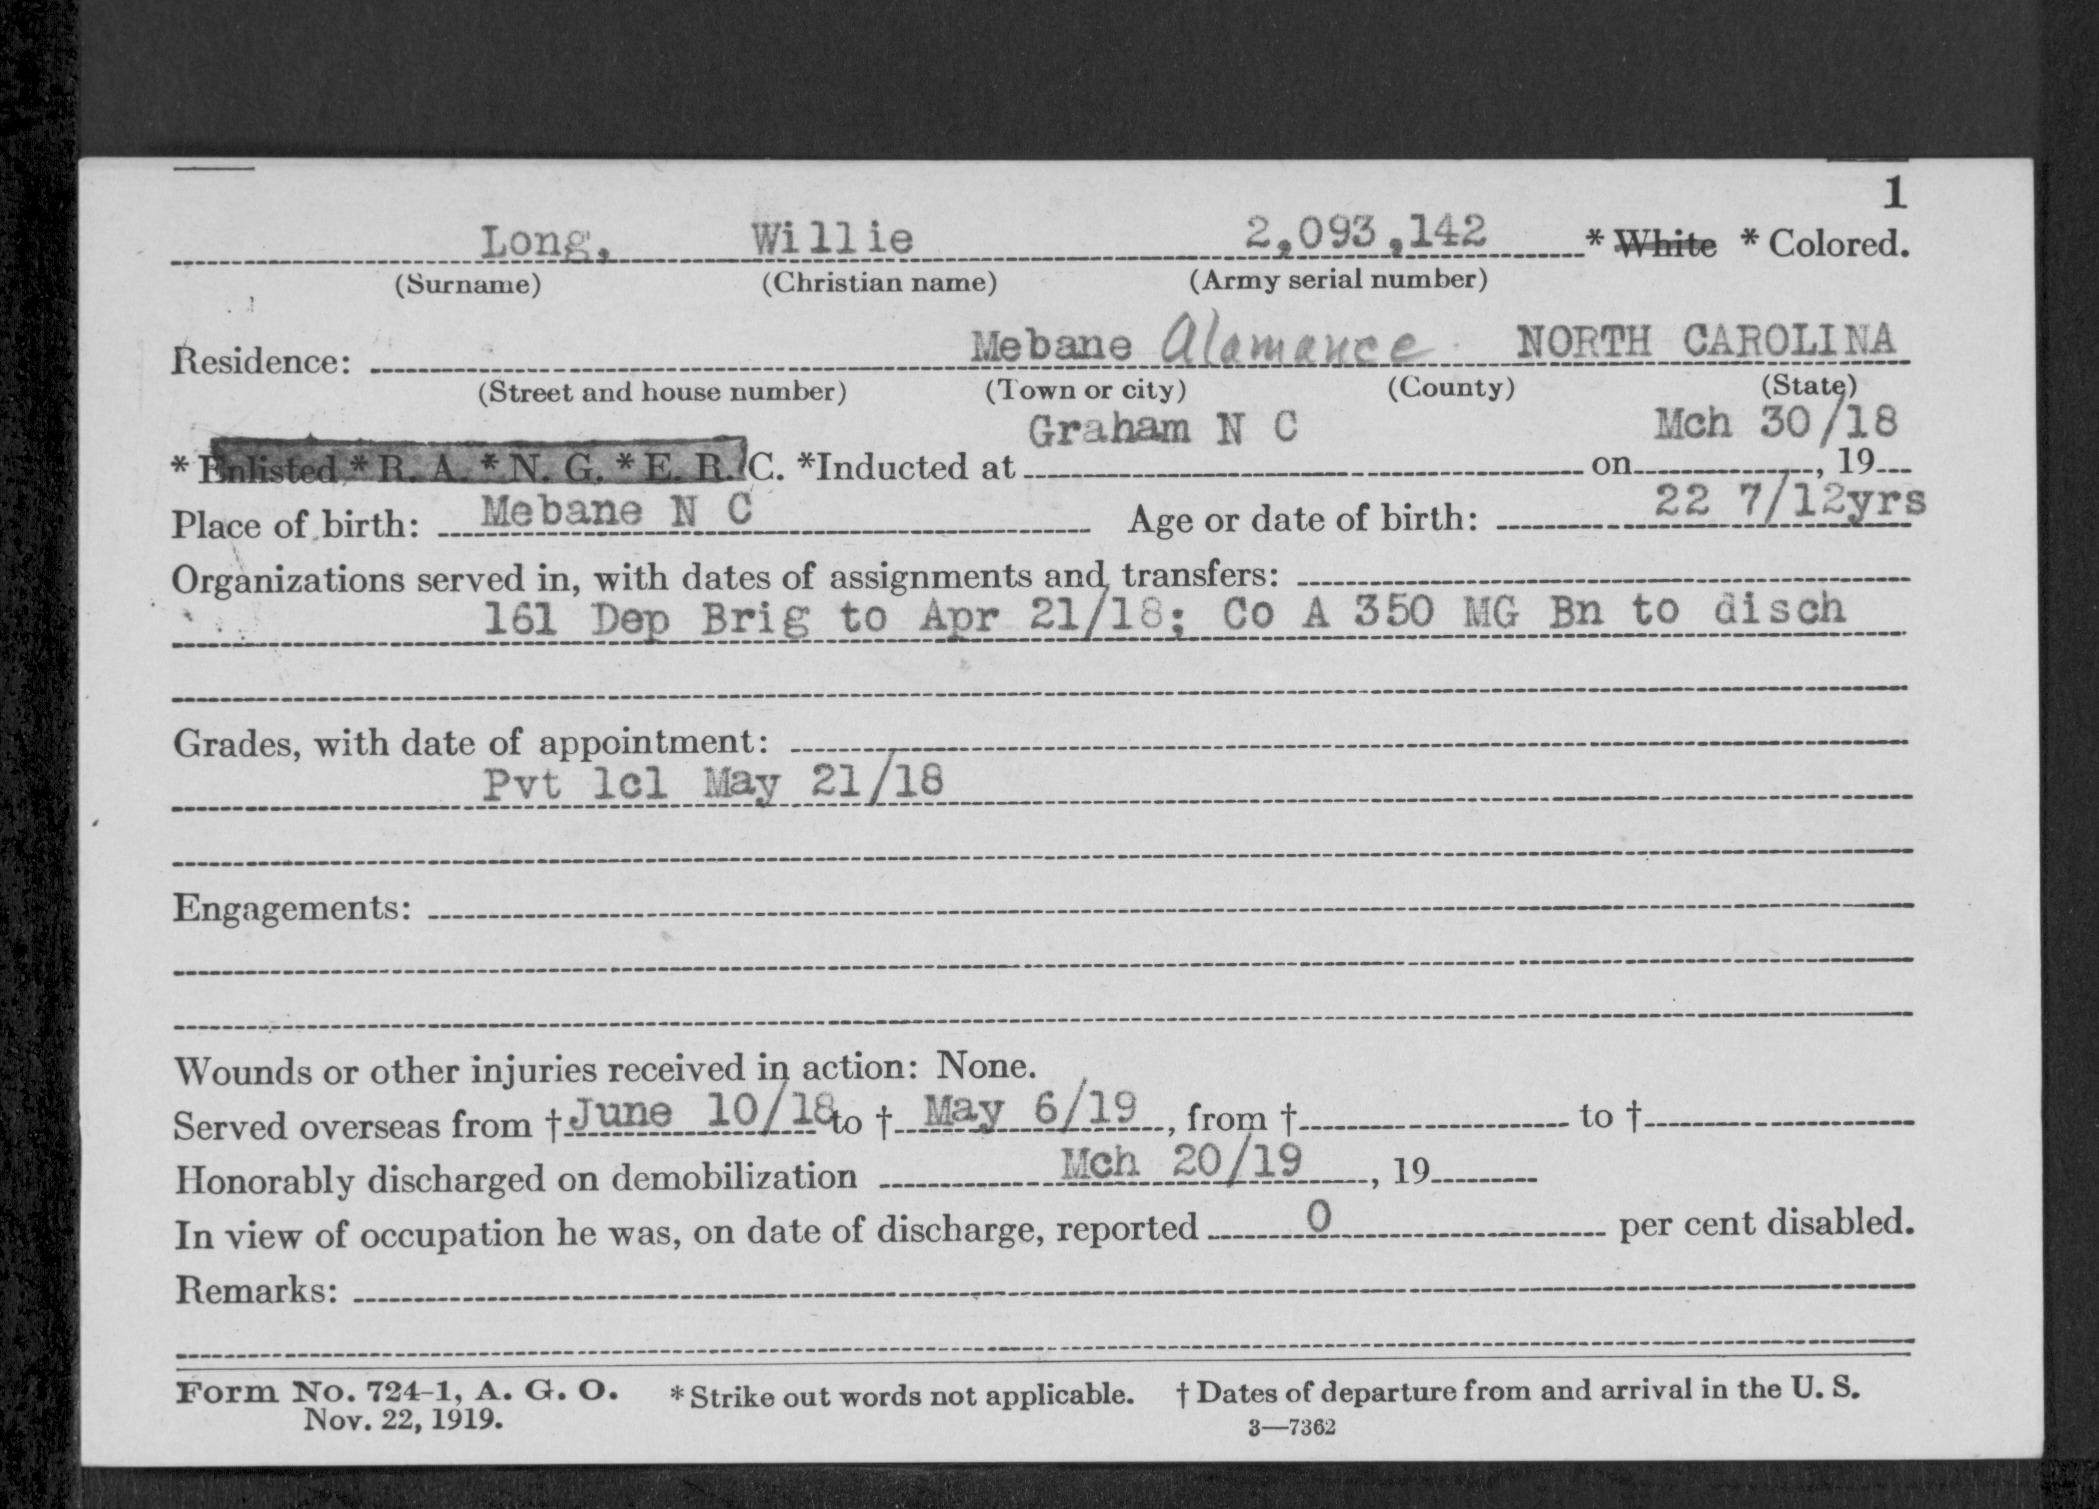 1
Long, Willie 2,093,142 * White * Colored.
(Surname) (Christian name) (Army serial number)
Residence: Mebane Alamance NORTH CAROLINA
(Street and house number) (Town or city) (County) (State)
Graham N C Mch 30/18
* Enlisted * R. A. * N. G. * E. R. C. *Inducted at on , 19
Place of birth: Mebane N C Age or date of birth: 22 7/12yrs
Organizations served in, with dates of assignments and transfers:
161 Dep Brig to Apr 21/18; Co A 350 MG Bn to disch
Grades, with date of appointment:
Pvt 1cl May 21/18
Engagements:
Wounds or other injuries received in action: None.
Served overseas from † June 10/18 to † May 6/19, from † to †
Honorably discharged on demobilization Mch 20/19, 19
In view of occupation he was, on date of discharge, reported 0 per cent disabled.
Remarks:
Form No. 724-1, A. G. O. * Strike out words not applicable. † Dates of departure from and arrival in the U. S.
Nov. 22, 1919. 3—7362